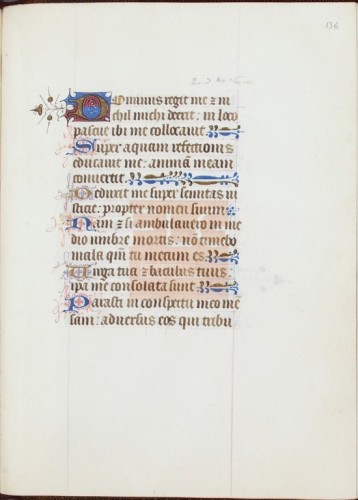 136
Dominus regit me ⁊ ni
chil michi deerit: in loco
pascue ibi me collocauit.
Super aquam refectionis
educauit me: animā meam
conuertit.
Deduxit me super semitas iu
sticie: propter nomen suum.
Nam ⁊ si ambulauero in me
dio umbre mortis: nō timebo
mala qm̄ tu mecum es.
Uirga tua ⁊ baculus tuus:
ipa me consolata sunt.
Parasti in conspectu meo me
sam: aduersus eos qui tribu